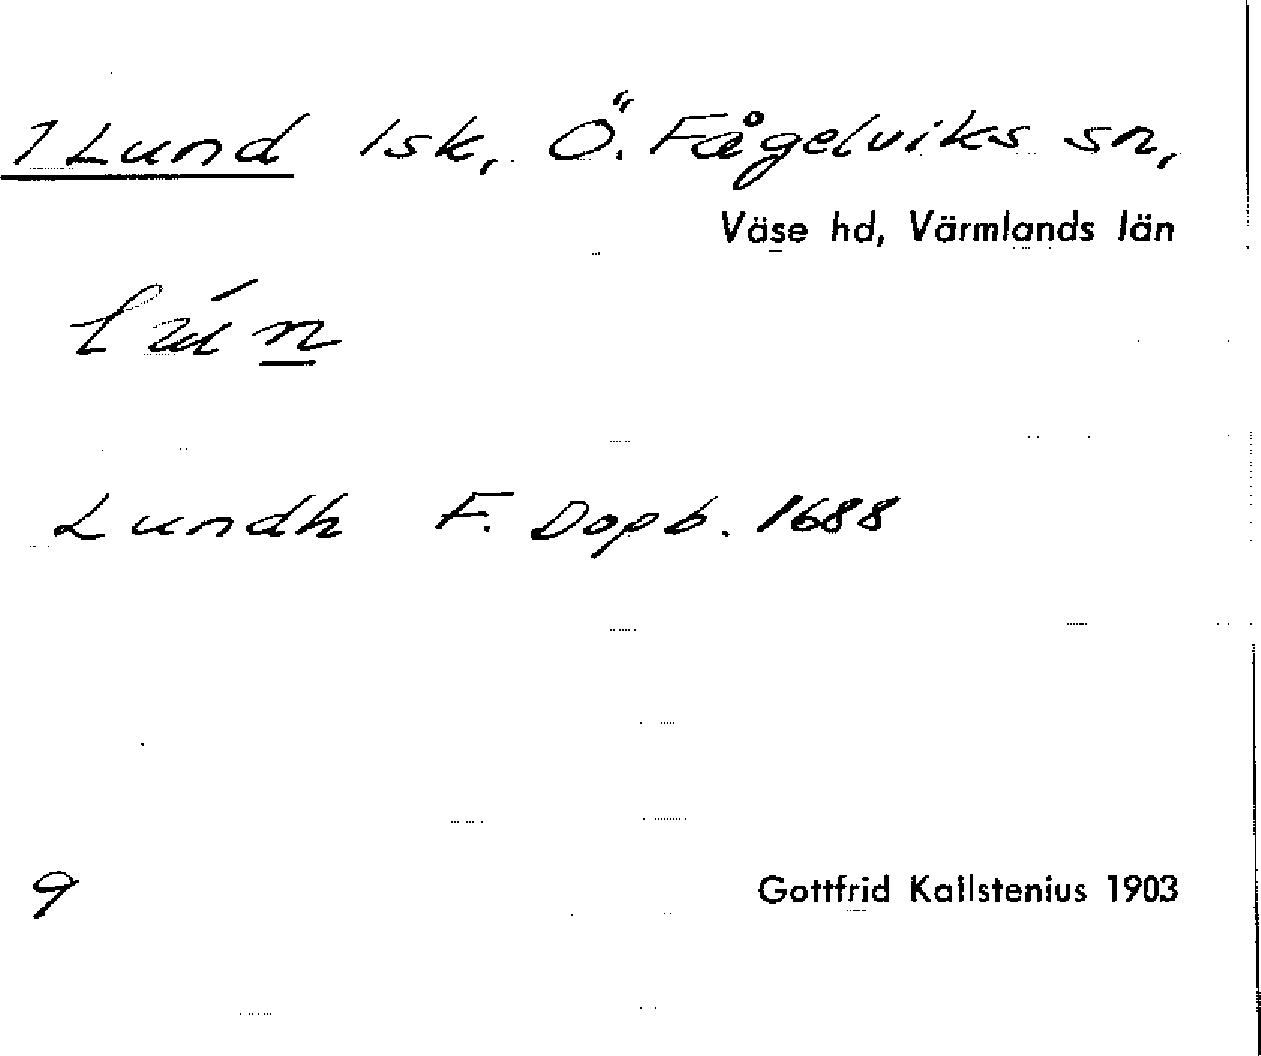 1 Lund lsk, Ö. Fågelviks sn,
Väse hd, Värmlands län
Lundh F. Dopb. 1688
9 Gottfrid Kallstenius 1903